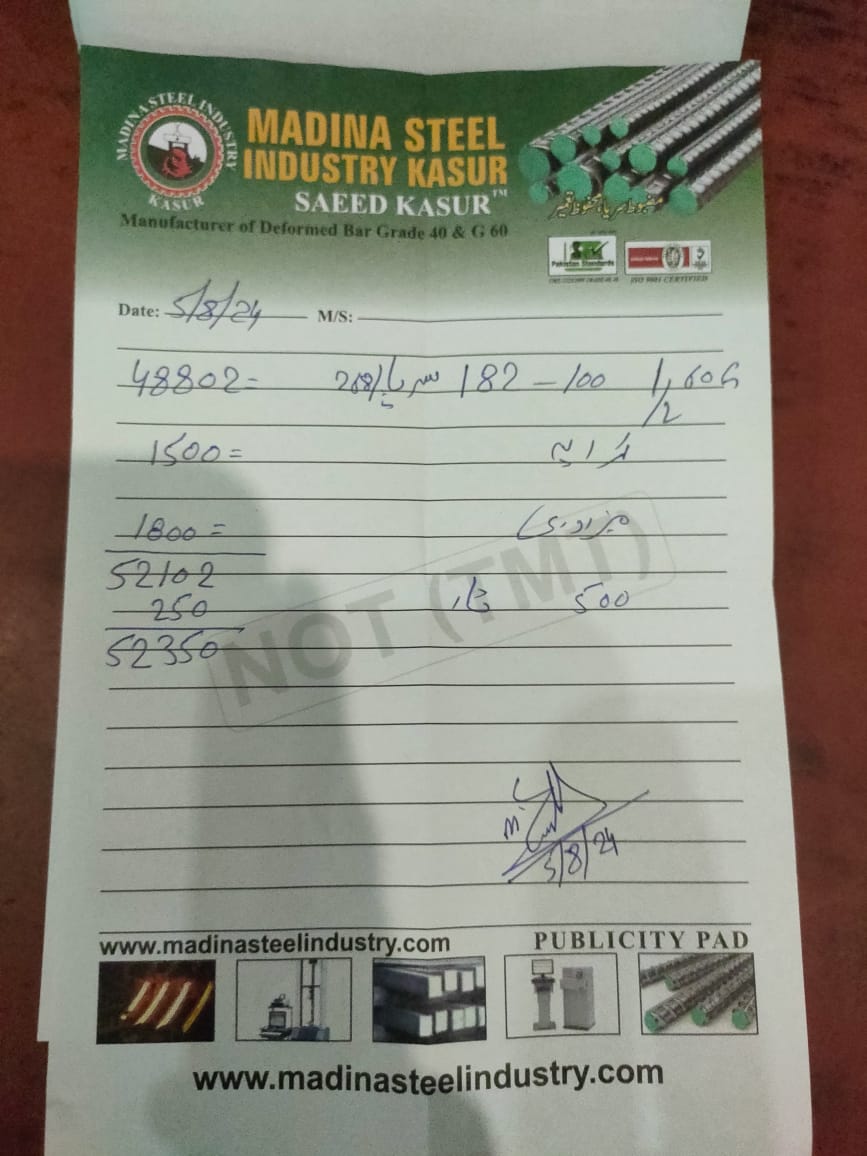 MADINA STEEL INDUSTRY
KASUR
MADINA STEEL
INDUSTRY KASUR
SAEED KASUR™
Manufacturer of Deformed Bar Grade 40 & G 60
مضبوط سریا، محفوظ تعمیر
Pakistan Standards
ISO 9001 CERTIFIED
Date: 5/8/24 M/S:
48802= 268/ سریا 182 – 100
1/2
1500=
1800=
52102
250 500
52350
NOT (TMT)
5/8/24
www.madinasteelindustry.com PUBLICITY PAD
www.madinasteelindustry.com